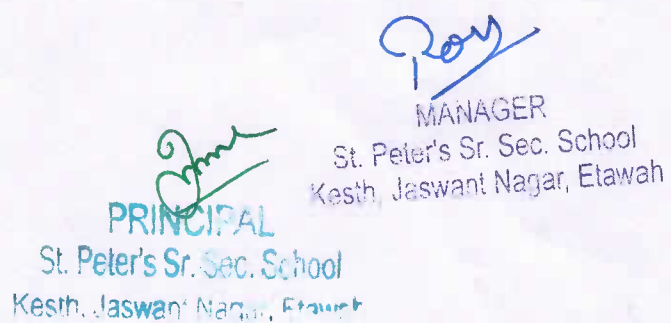 Roy
MANAGER
St. Peter's Sr. Sec. School
Kesth, Jaswant Nagar, Etawah
PRINCIPAL
St. Peter's Sr. Sec. School
Kesth, Jaswant Nagar, Etawah